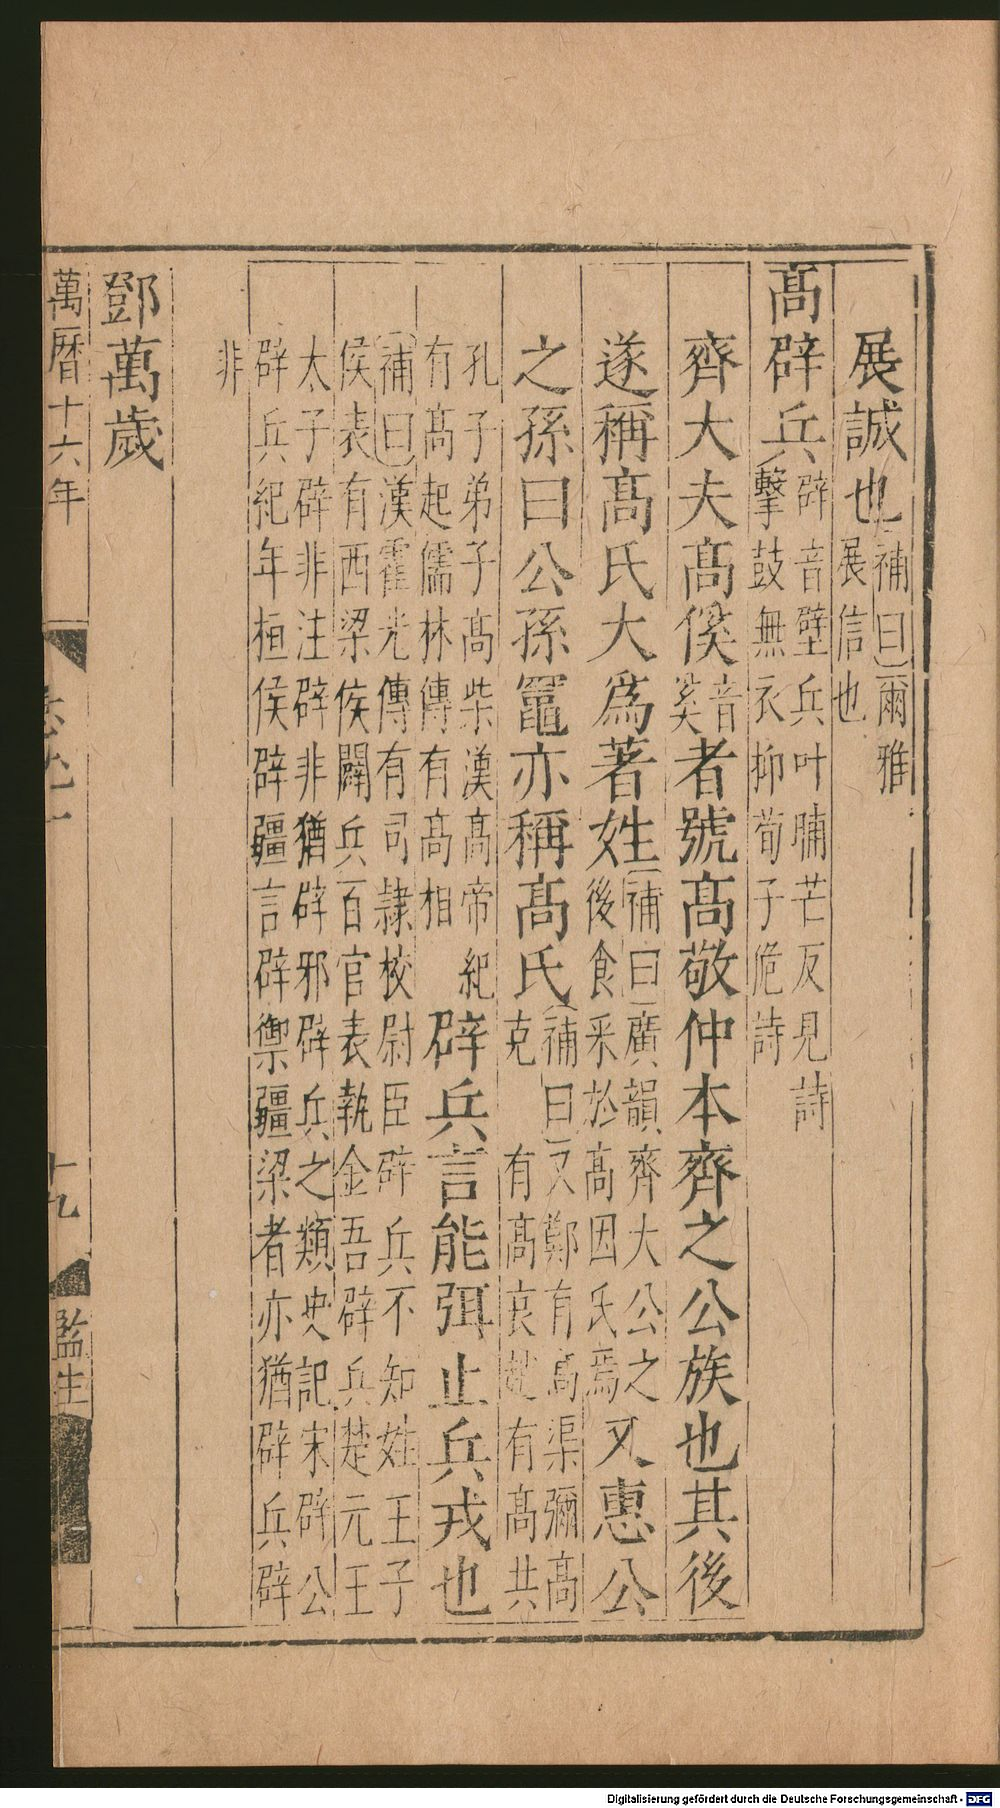 展誠也補曰爾雅
展信也
高辟兵辟音壁兵叶晡芒反見詩
擊鼓無衣抑荀子佹詩
齊大夫高傒音
奚者號高敬仲本齊之公族也其後
遂稱高氏大爲著姓補曰廣韻齊大公之
後食釆於高因氏焉又惠公
之孫曰公孫竈亦稱高氏補曰又鄭有高渠彌高
克 有高哀 有高共
孔子弟子高柴漢高帝紀
有高起儒林傳有高相辟兵言能弭止兵戎也
補曰漢霍光傳有司隷校尉臣辟兵不知姓王子
侯表有西梁侯闢兵百官表執金吾辟兵楚元王
太子辟非注辟非猶辟邪辟兵之類史記宋辟公
辟兵紀年桓侯辟疆言辟禦疆梁者亦猶辟兵辟
非
鄧萬歲
萬曆十六年
十九
監生
Digitalisierung gefördert durch die Deutsche Forschungsgemeinschaft - DFG